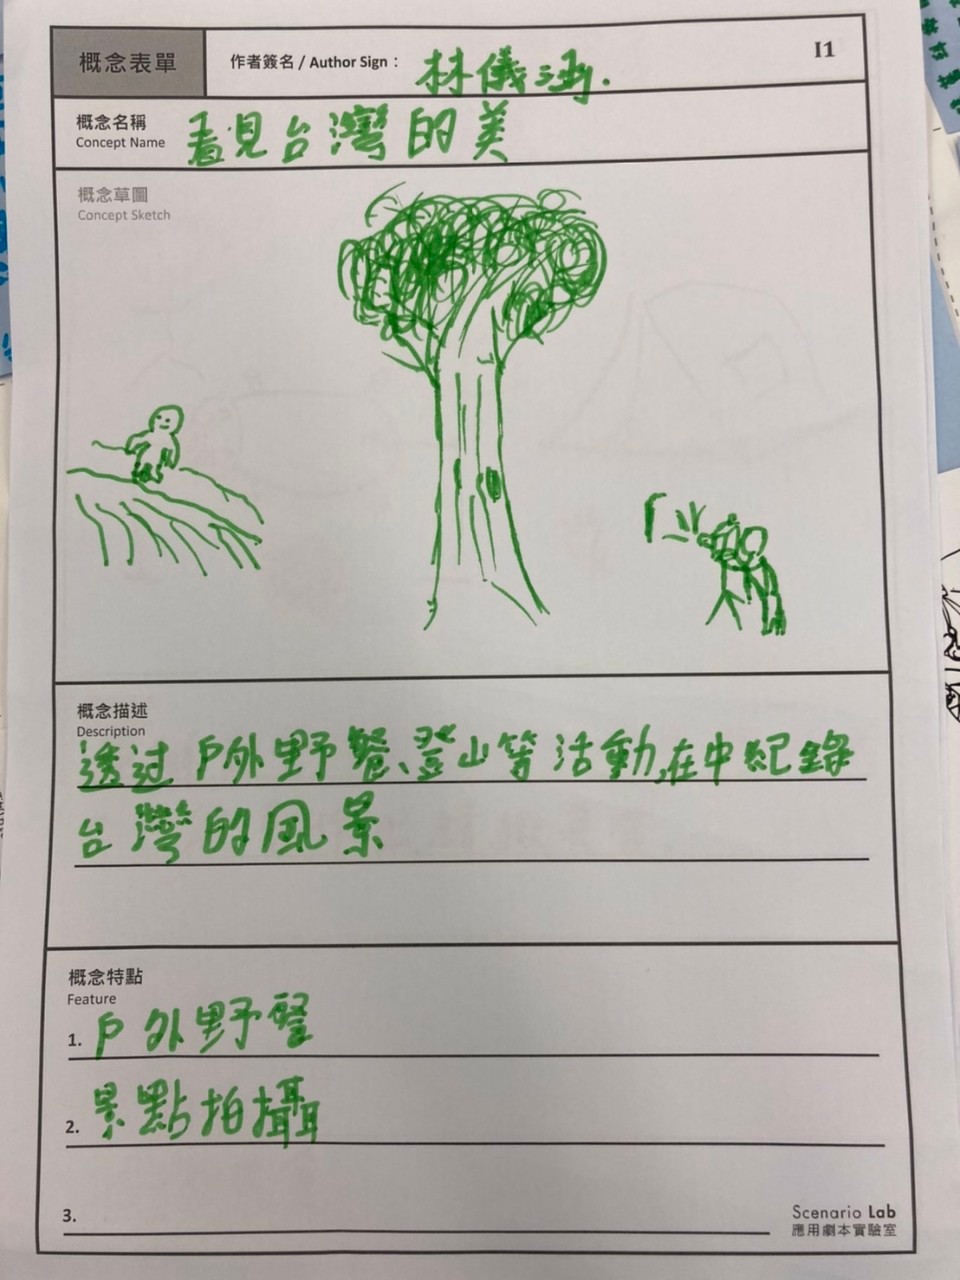 概念表單
作者簽名 / Author Sign： 林儀涵.
I1
概念名稱
Concept Name
看見台灣的美
概念草圖
Concept Sketch
概念描述
Description
透过戶外野餐、登山等活動,在中紀錄
台灣的風景
概念特點
Feature
1. 戶外野餐
2. 景點拍攝
3.
Scenario Lab
應用劇本實驗室